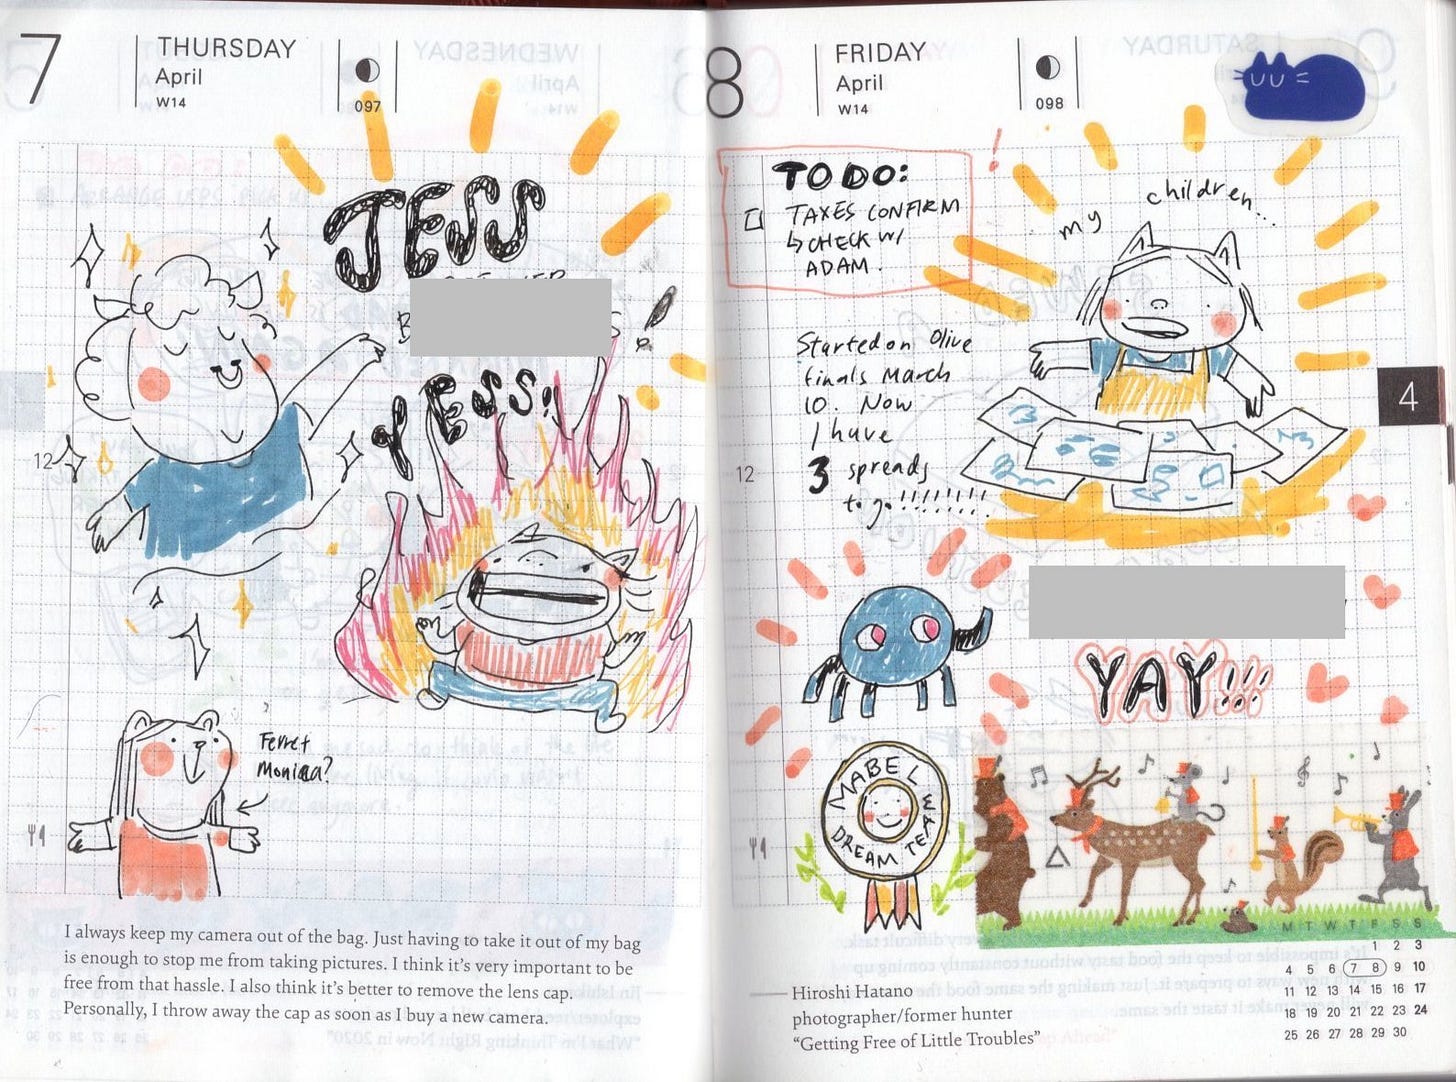 7
THURSDAY
April
W14
097
JESS
YESS!
12
Ferret
Monica?
I always keep my camera out of the bag. Just having to take it out of my bag
is enough to stop me from taking pictures. I think it's very important to be
free from that hassle. I also think it's better to remove the lens cap.
Personally, I throw away the cap as soon as I buy a new camera.
8
FRIDAY
April
W14
098
TO DO:
TAXES CONFIRM
↳ CHECK W/
ADAM.
my children...
Started on Olive
finals March
10. Now
I have
3 spreads
to go!!!!!!!!
12
4
YAY!!!
MABEL
DREAM TEAM
Hiroshi Hatano
photographer/former hunter
"Getting Free of Little Troubles"
M T W T F S S
1 2 3
4 5 6 7 8 9 10
11 12 13 14 15 16 17
18 19 20 21 22 23 24
25 26 27 28 29 30